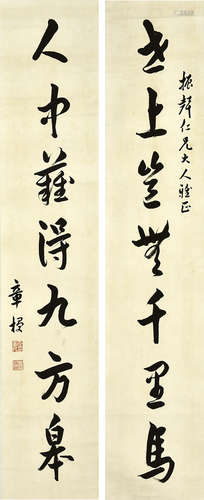 世上豈無千里馬
振聲仁兄大人雅正
人中難得九方皋
章梫